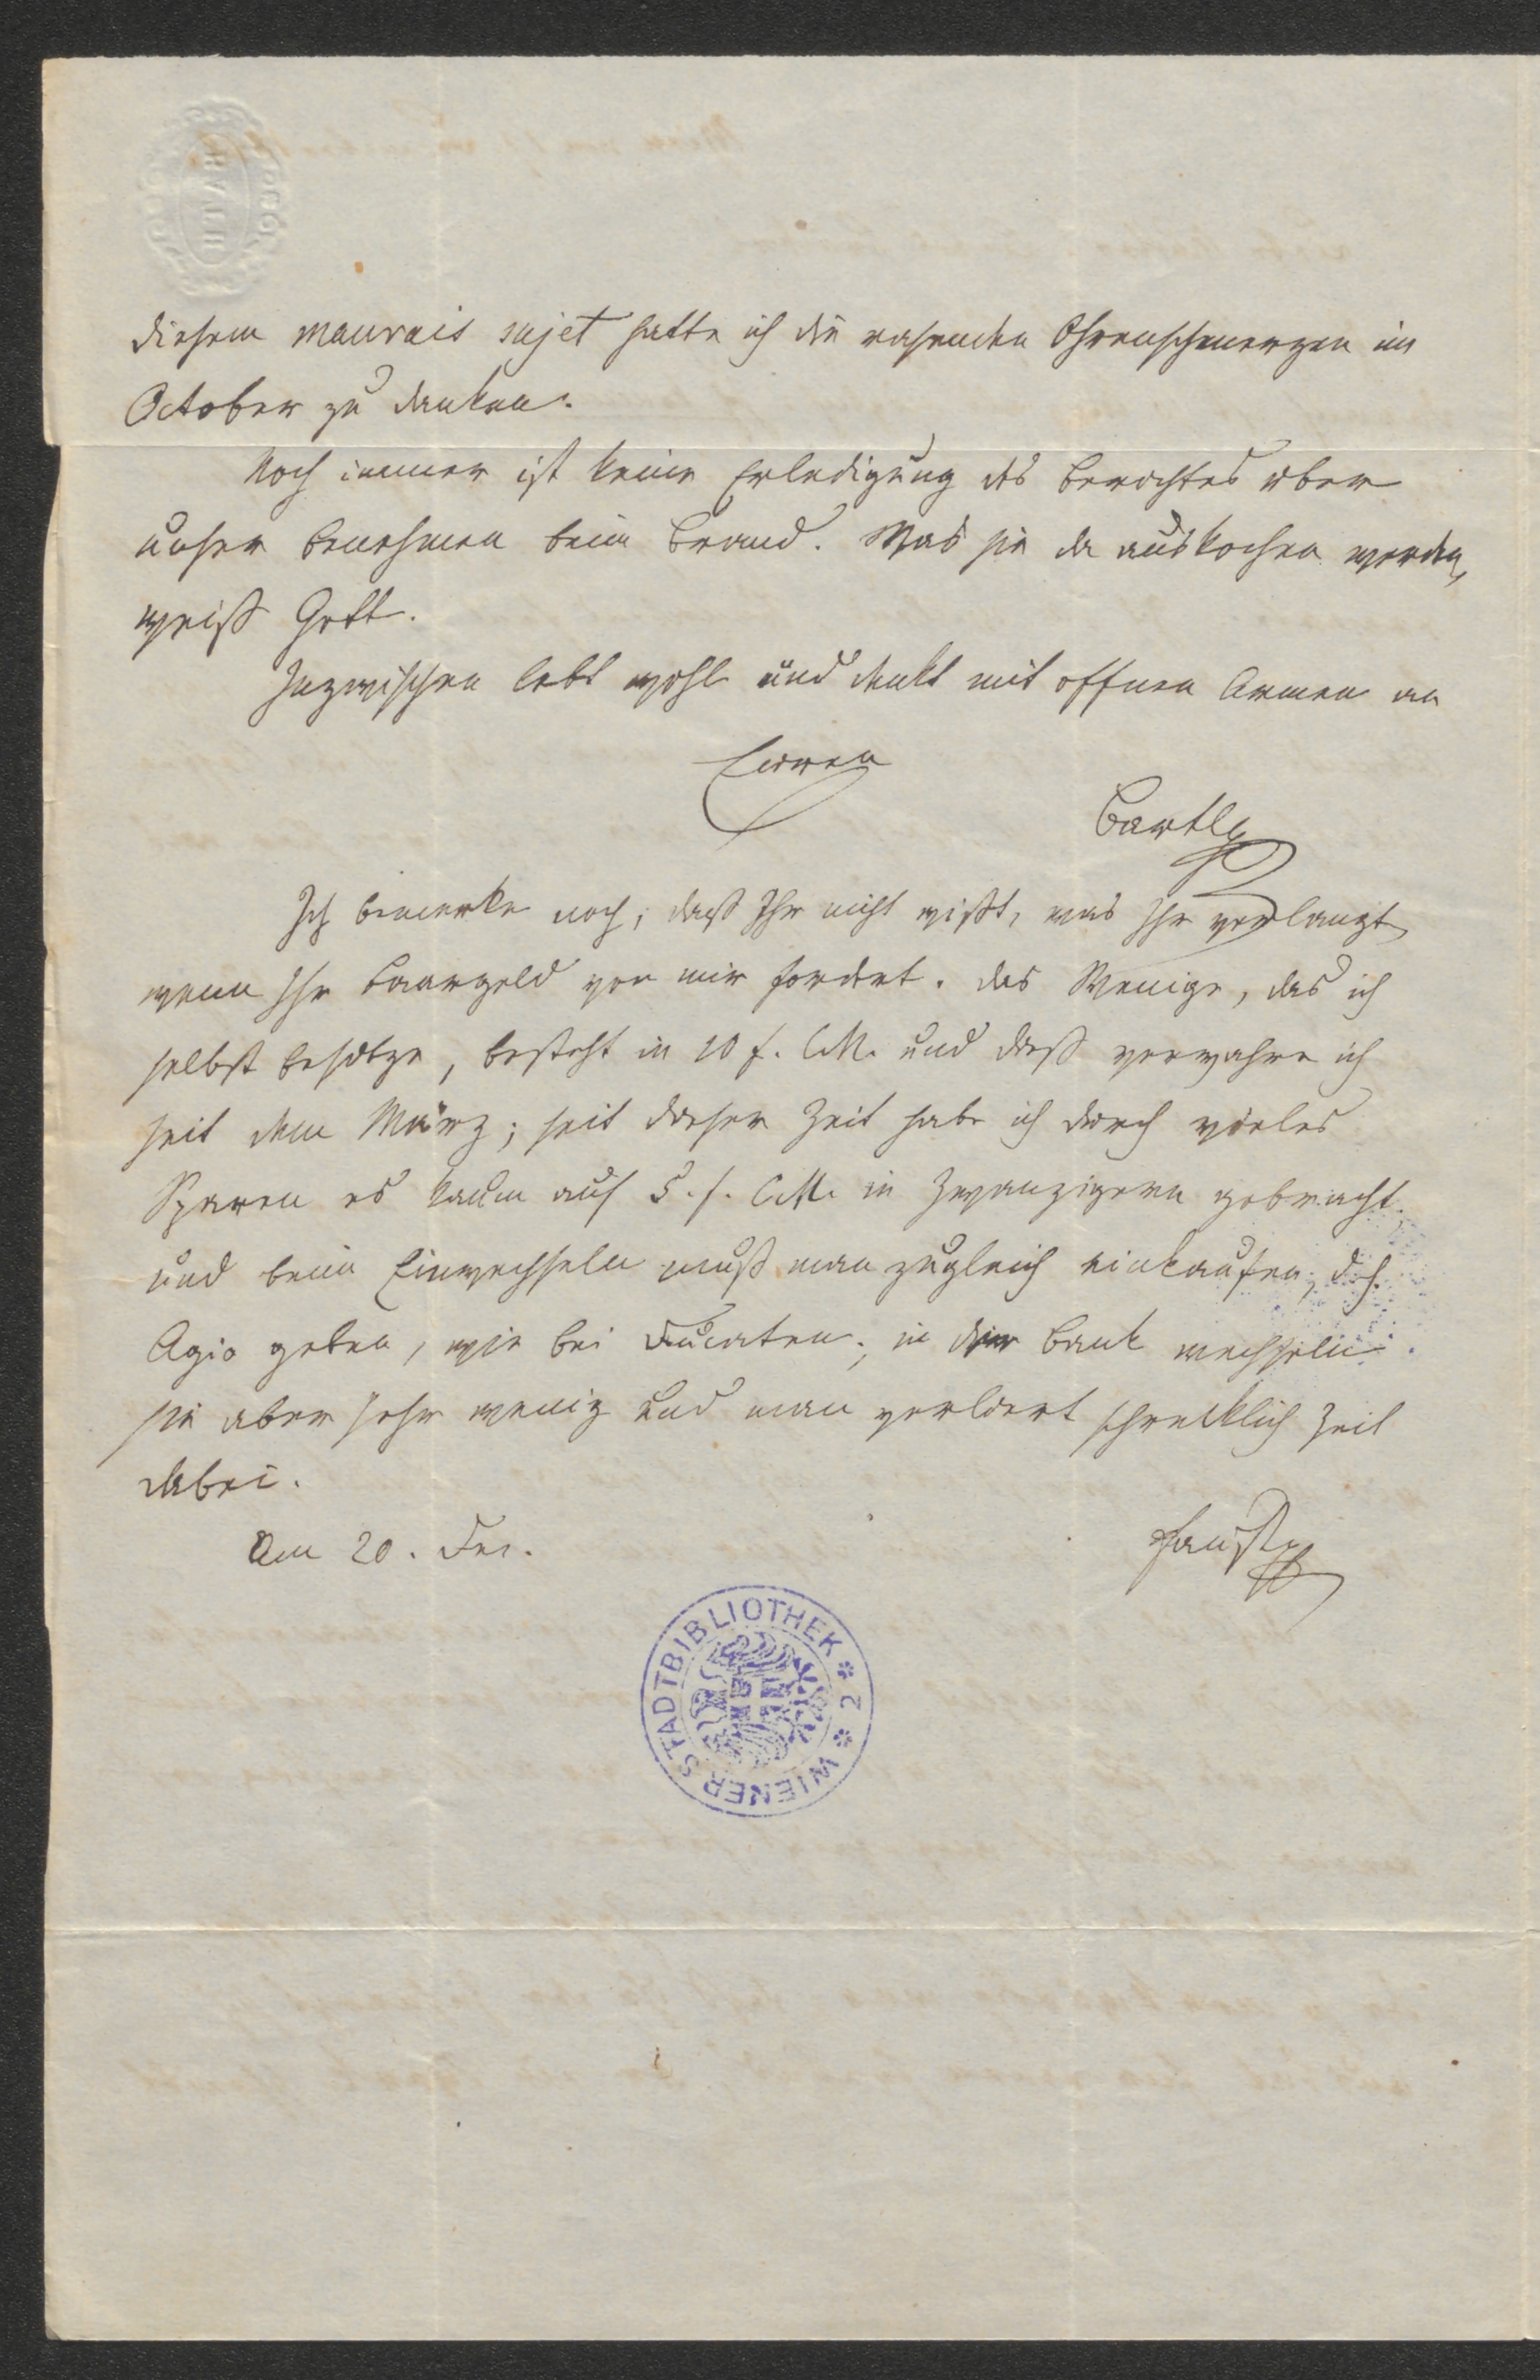 BATH
diesem mauvais sujet hatte ich die rasenden Ohrenschmerzen im
October zu danken.
Noch immer ist keine Erledigung des Berichtes über
unser Benehmen beim Brand. Was sie da auskochen werden,
weiß Gott.
Inzwischen lebt wohl und denkt mit offnen Armen an
Euren
Bartly
Ich bemerke noch, daß Ihr nicht wißt, was Ihr verlangt
wenn Ihr Baargeld von mir fordert. Das Wenige, das ich
selbst besitze, besteht in 10 f. C.M. und dieß verwahre ich
seit dem März; seit dieser Zeit habe ich durch vieles
Sparen es kaum auf 5. f. C.M. in Zwanzigern gebracht,
und beim Einwechseln muß man zugleich einkaufen, d.h.
Agio geben, wie bei Ducaten; in der Bank wechseln
sie aber sehr wenig und man verliert schrecklich Zeit
dabei.
Am 20. Dec.
Faust
WIENER STADTBIBLIOTHEK * 2 *